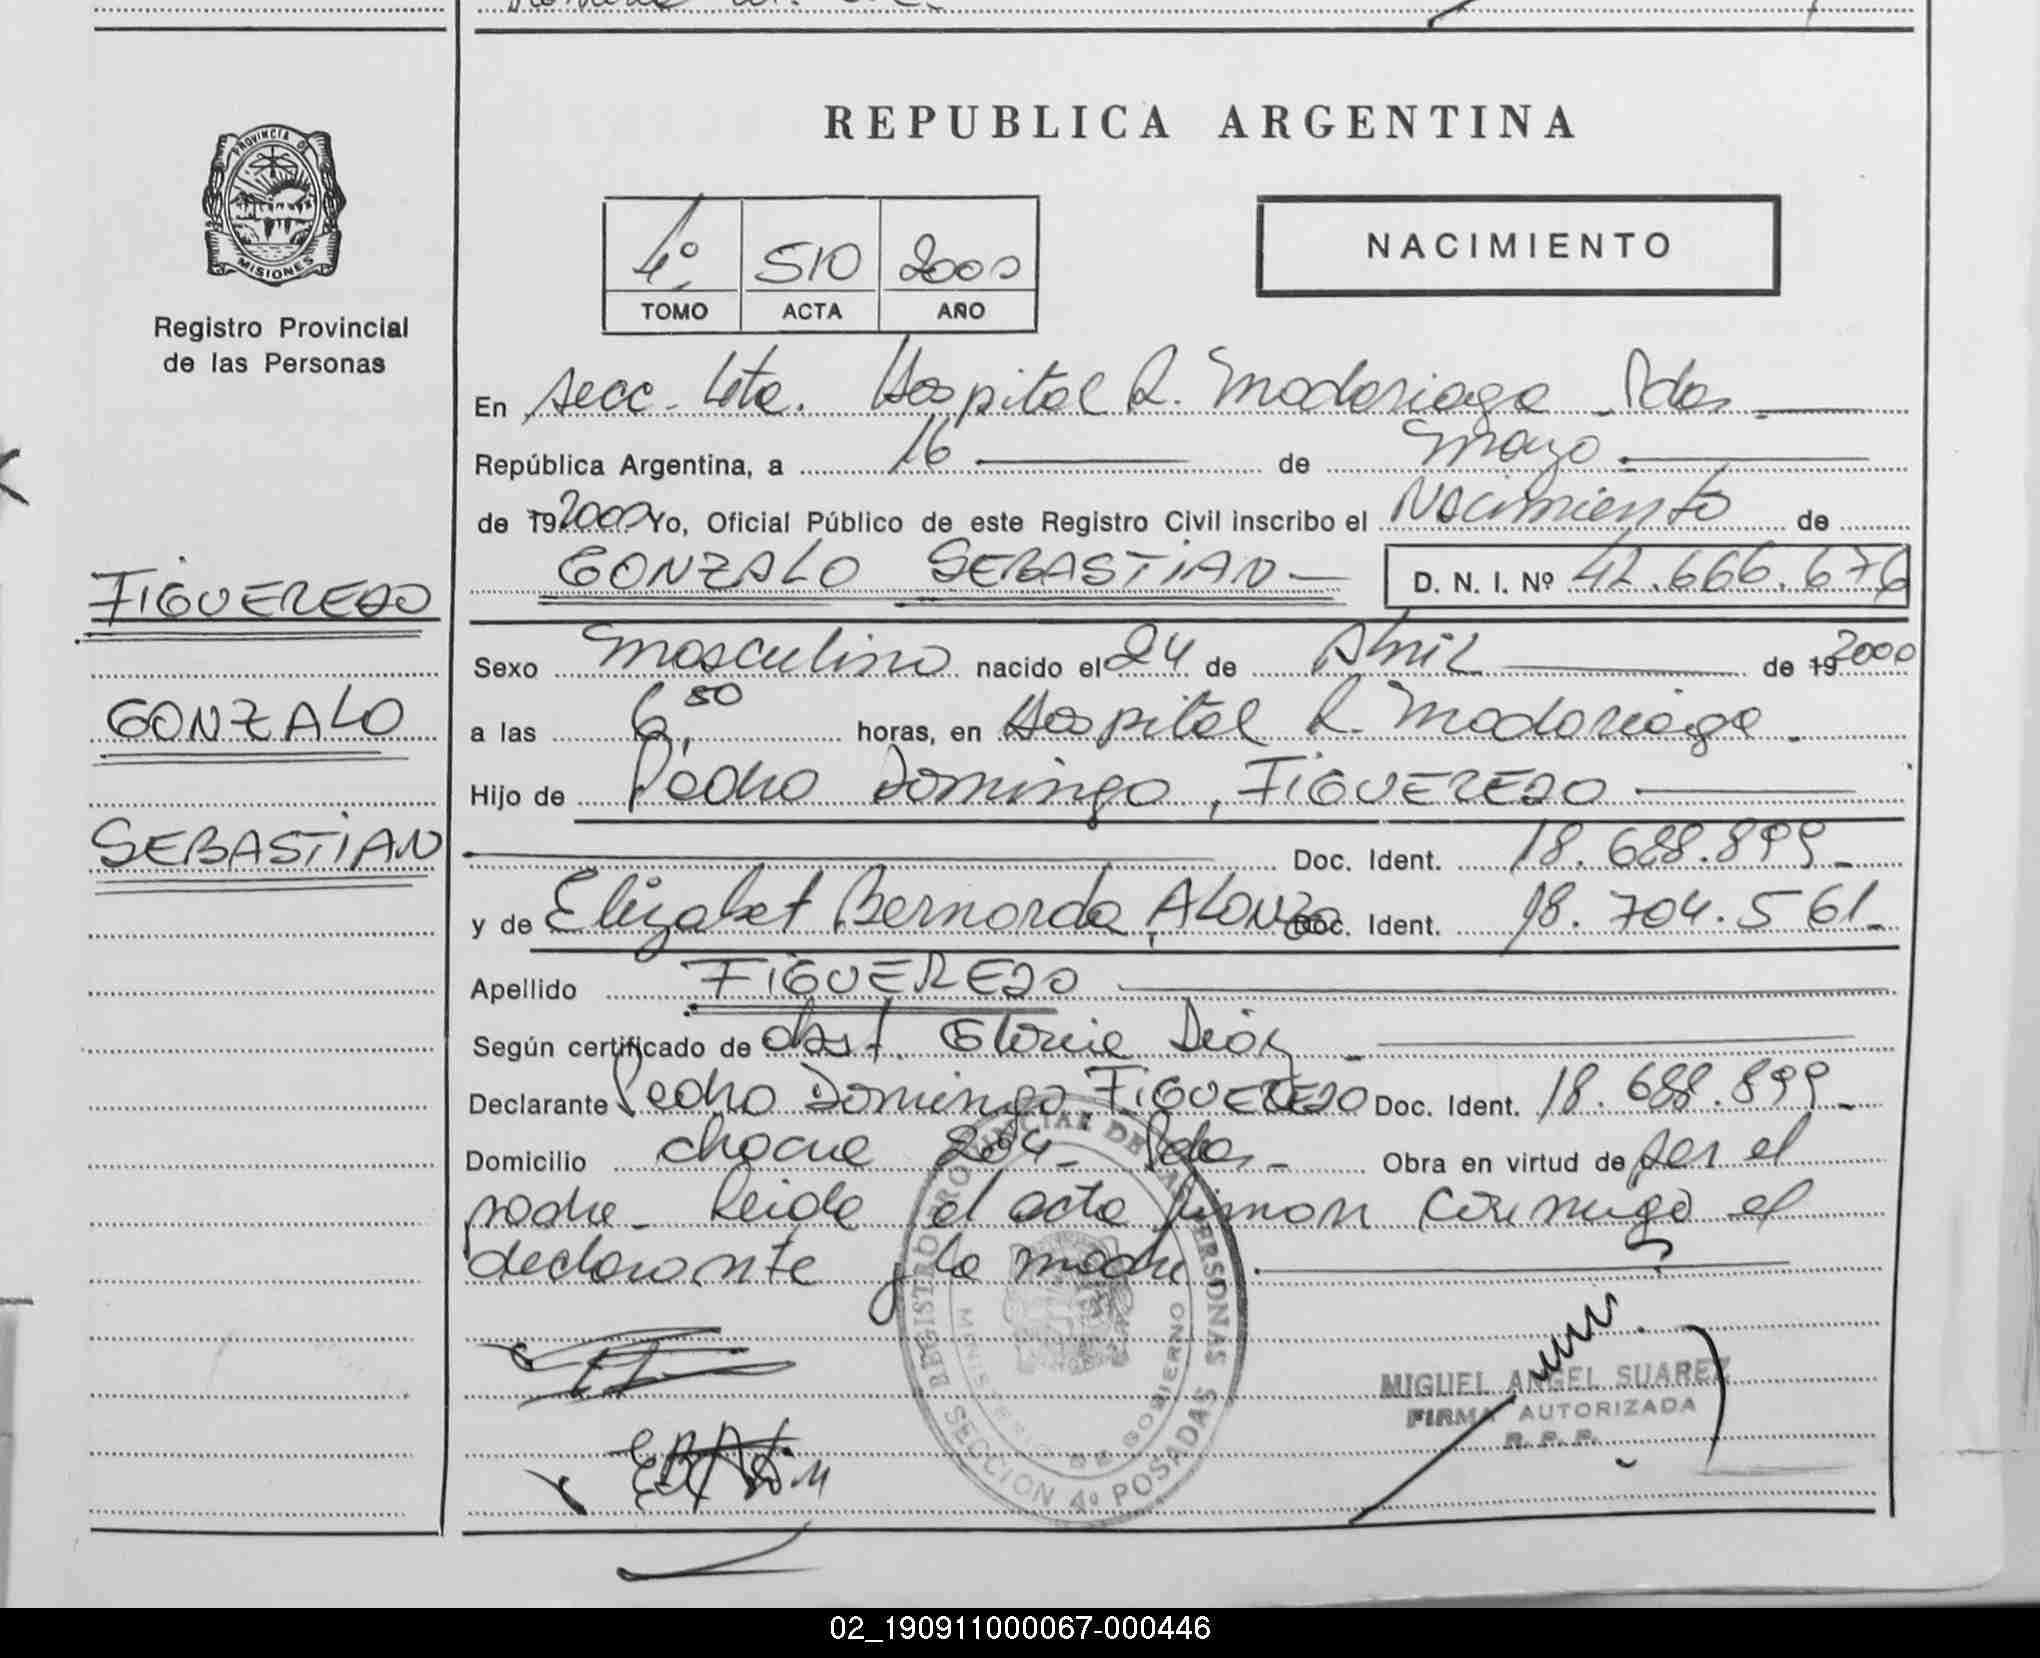 PROVINCIA DE
MISIONES
Registro Provincial
de las Personas
FIGUEREDO
GONZALO
SEBASTIAN
REPUBLICA ARGENTINA
4º 510 2000
TOMO ACTA AÑO
NACIMIENTO
En secc. 4ta. Hospital R. Madariaga - Pdas -
República Argentina, a 16 de Mayo
de 19 2000 Yo, Oficial Público de este Registro Civil inscribo el Nacimiento de
GONZALO SEBASTIAN - D. N. I. Nº 42.666.676
Sexo Masculino nacido el 24 de Abril de 19 2000
a las 6,50 horas, en Hospital R. Madariaga.
Hijo de Pedro Domingo, FIGUEREDO
Doc. Ident. 18.688.899-
y de Elizabet Bernarda, ALONZO Doc. Ident. 18.704.561-
Apellido FIGUEREDO
Según certificado de obst. Gloria Diaz -
Declarante Pedro Domingo FIGUEREDO Doc. Ident. 18.688.899-
Domicilio chacra 204- Pdas- Obra en virtud de ser el
padre- Leida el acta firman conmigo el
declarante y la madre
REGISTRO PROVINCIAL DE LAS PERSONAS
MINISTERIO DE GOBIERNO
SECCION 4º POSADAS
MIGUEL ANGEL SUAREZ
FIRMA AUTORIZADA
R. P. P.
02_190911000067-000446